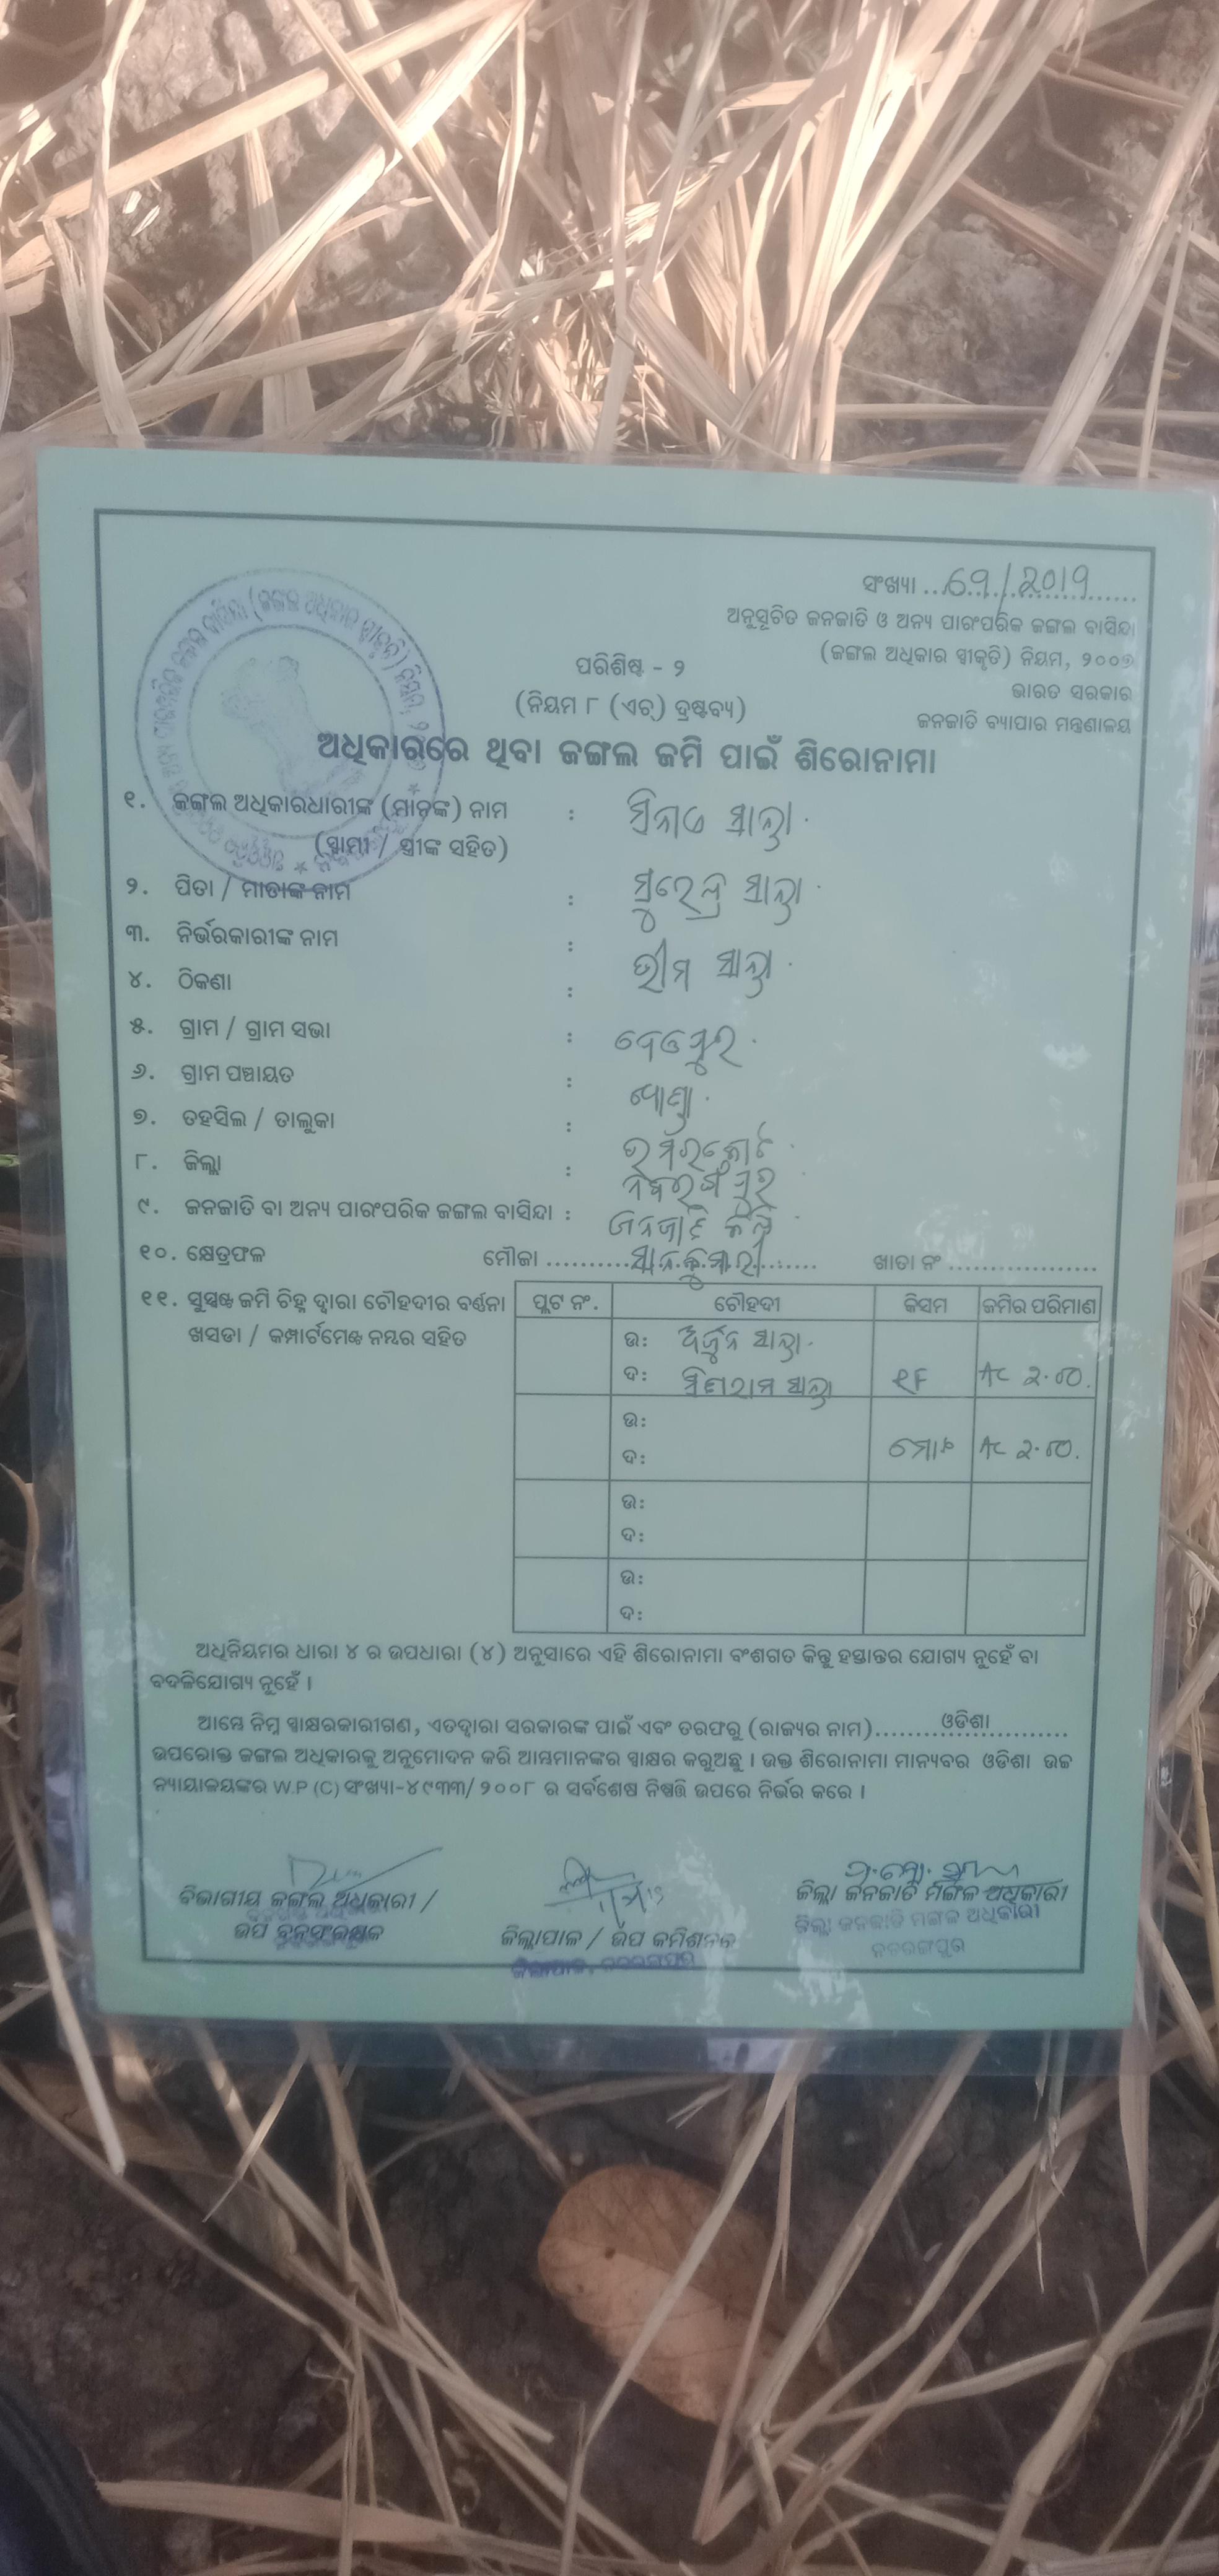 ସଂଖ୍ୟା ... ୬୨/୨୦୧୨
ଅନୁସୂଚିତ ଜନଜାତି ଓ ଅନ୍ୟ ପାରଂପରିକ ଜଙ୍ଗଲ ବାସିନ୍ଦା
(ଜଙ୍ଗଲ ଅଧିକାର ସ୍ୱୀକୃତି) ନିୟମ, ୨୦୦୭
ଭାରତ ସରକାର
ଜନଜାତି ବ୍ୟାପାର ମନ୍ତ୍ରଣାଳୟ
ପରିଶିଷ୍ଟ - ୨
(ନିୟମ ୮ (ଏଚ୍) ଦ୍ରଷ୍ଟବ୍ୟ)
ଅଧିକାରରେ ଥିବା ଜଙ୍ଗଲ ଜମି ପାଇଁ ଶିରୋନାମା
୧. ଜଙ୍ଗଲ ଅଧିକାରଧାରୀଙ୍କ (ମାନଙ୍କ) ନାମ :
(ସ୍ୱାମୀ / ସ୍ତ୍ରୀଙ୍କ ସହିତ)
୨. ପିତା / ମାତାଙ୍କ ନାମ : ସୁରେନ୍ଦ୍ର ସାନ୍ତା
୩. ନିର୍ଭରକାରୀଙ୍କ ନାମ : ଭୀମ ସାନ୍ତା
୪. ଠିକଣା :
୫. ଗ୍ରାମ / ଗ୍ରାମ ସଭା :
୬. ଗ୍ରାମ ପଞ୍ଚାୟତ :
୭. ତହସିଲ / ତାଲୁକା : ଉମରକୋଟ
୮. ଜିଲ୍ଲା : ନବରଙ୍ଗପୁର
୯. ଜନଜାତି ବା ଅନ୍ୟ ପାରଂପରିକ ଜଙ୍ଗଲ ବାସିନ୍ଦା : ଜନଜାତି
୧୦. କ୍ଷେତ୍ରଫଳ ମୌଜା ............ ଖାତା ନଂ ..................
୧୧. ସୁସ୍ପଷ୍ଟ ଜମି ଚିହ୍ନ ଦ୍ୱାରା ଚୌହଦୀର ବର୍ଣ୍ଣନା ପ୍ଲଟ ନଂ. ଚୌହଦୀ କିସମ ଜମିର ପରିମାଣ
ଖସଡା / କମ୍ପାର୍ଟମେଣ୍ଟ ନମ୍ବର ସହିତ ଉ: ଅର୍ଜୁନ ସାନ୍ତା
ଦ: ସାନ୍ତା RF Ac ୨.୦୦
ଉ:
ଦ: ମୋଟ Ac ୨.୦୦
ଉ:
ଦ:
ଉ:
ଦ:
ଅଧିନିୟମର ଧାରା ୪ ର ଉପଧାରା (୪) ଅନୁସାରେ ଏହି ଶିରୋନାମା ବଂଶଗତ କିନ୍ତୁ ହସ୍ତାନ୍ତର ଯୋଗ୍ୟ ନୁହେଁ ବା
ବଦଳିଯୋଗ୍ୟ ନୁହେଁ ।
ଆମ୍ଭେ ନିମ୍ନ ସ୍ୱାକ୍ଷରକାରୀଗଣ, ଏତଦ୍ୱାରା ସରକାରଙ୍କ ପାଇଁ ଏବଂ ତରଫରୁ (ରାଜ୍ୟର ନାମ)......ଓଡିଶା......
ଉପରୋକ୍ତ ଜଙ୍ଗଲ ଅଧିକାରକୁ ଅନୁମୋଦନ କରି ଆମ୍ଭମାନଙ୍କର ସ୍ୱାକ୍ଷର କରୁଅଛୁ । ଉକ୍ତ ଶିରୋନାମା ମାନ୍ୟବର ଓଡିଶା ଉଚ୍ଚ
ନ୍ୟାୟାଳୟଙ୍କର W.P (C) ସଂଖ୍ୟା-୪୯୩୩/ ୨୦୦୮ ର ସର୍ବଶେଷ ନିଷ୍ପତ୍ତି ଉପରେ ନିର୍ଭର କରେ ।
ବିଭାଗୀୟ ଜଙ୍ଗଲ ଅଧିକାରୀ /
ଉପ ବନସଂରକ୍ଷକ
ଜିଲ୍ଲାପାଳ / ଉପ କମିଶନର
ଜିଲ୍ଲାପାଳ, ନବରଙ୍ଗପୁର
ଜିଲ୍ଲା ଜନଜାତି ମଙ୍ଗଳ ଅଧିକାରୀ
ଜିଲ୍ଲା ଜନଜାତି ମଙ୍ଗଳ ଅଧିକାରୀ
ନବରଙ୍ଗପୁର